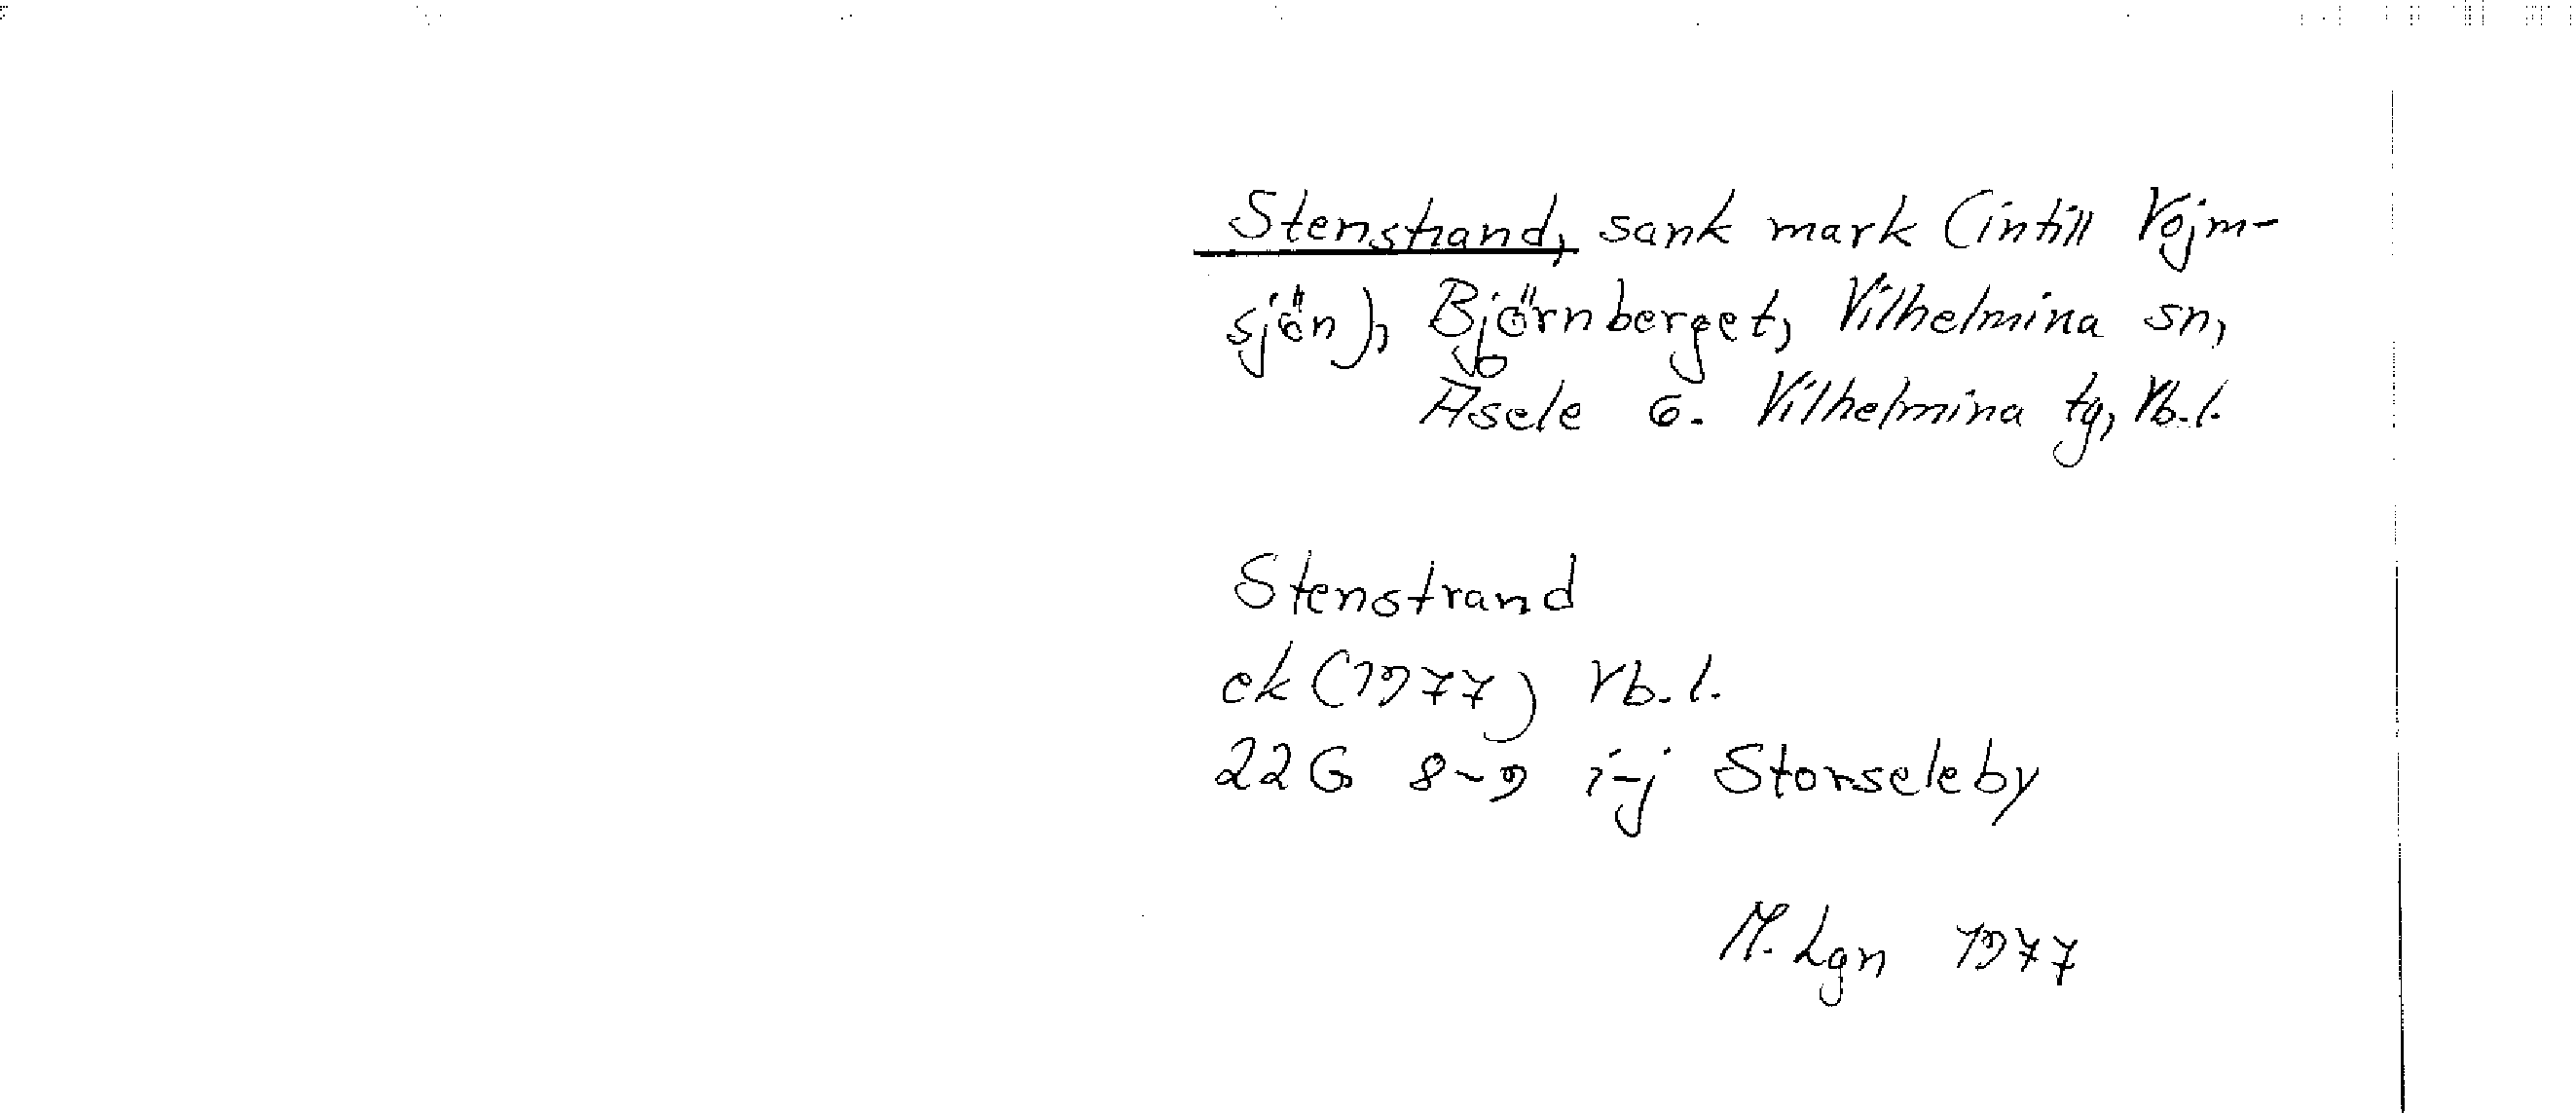 Stenstrand, sank mark (intill Vojm-
sjön), Björnberget, Vilhelmina sn,
Åsele o. Vilhelmina tg, Vb.l.
Stenstrand
ek (1977) Vb.l.
22G 8-9 i-j Storseleby
M. Lgn 1977